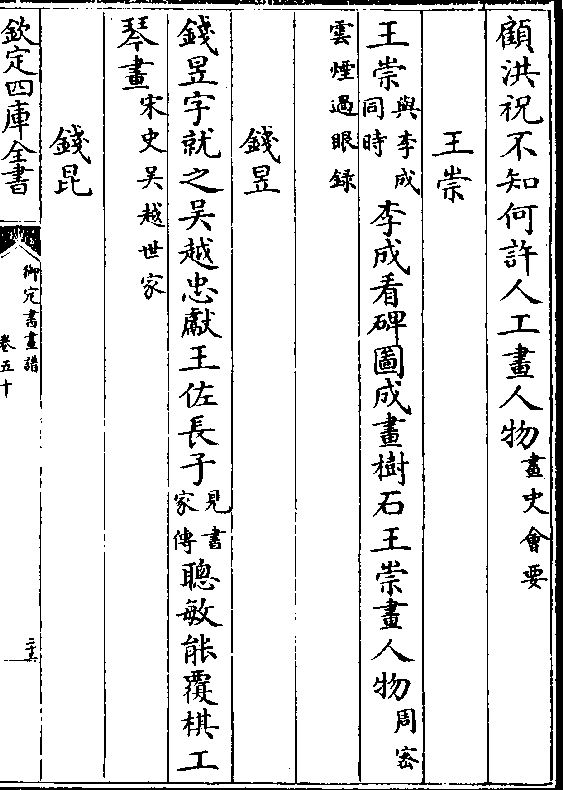 顧洪祝不知何許人工畫人物畫史會要
王崇
王崇與李成同時李成看碑圖成畫樹石王崇畫人物周密
雲煙過眼録
錢昱
錢昱字就之吳越忠獻王佐長子見書家傳聰敏能覆棋工
琴畫宋史吳越世家
錢昆
欽定四庫全書
御定書畫譜
卷五十